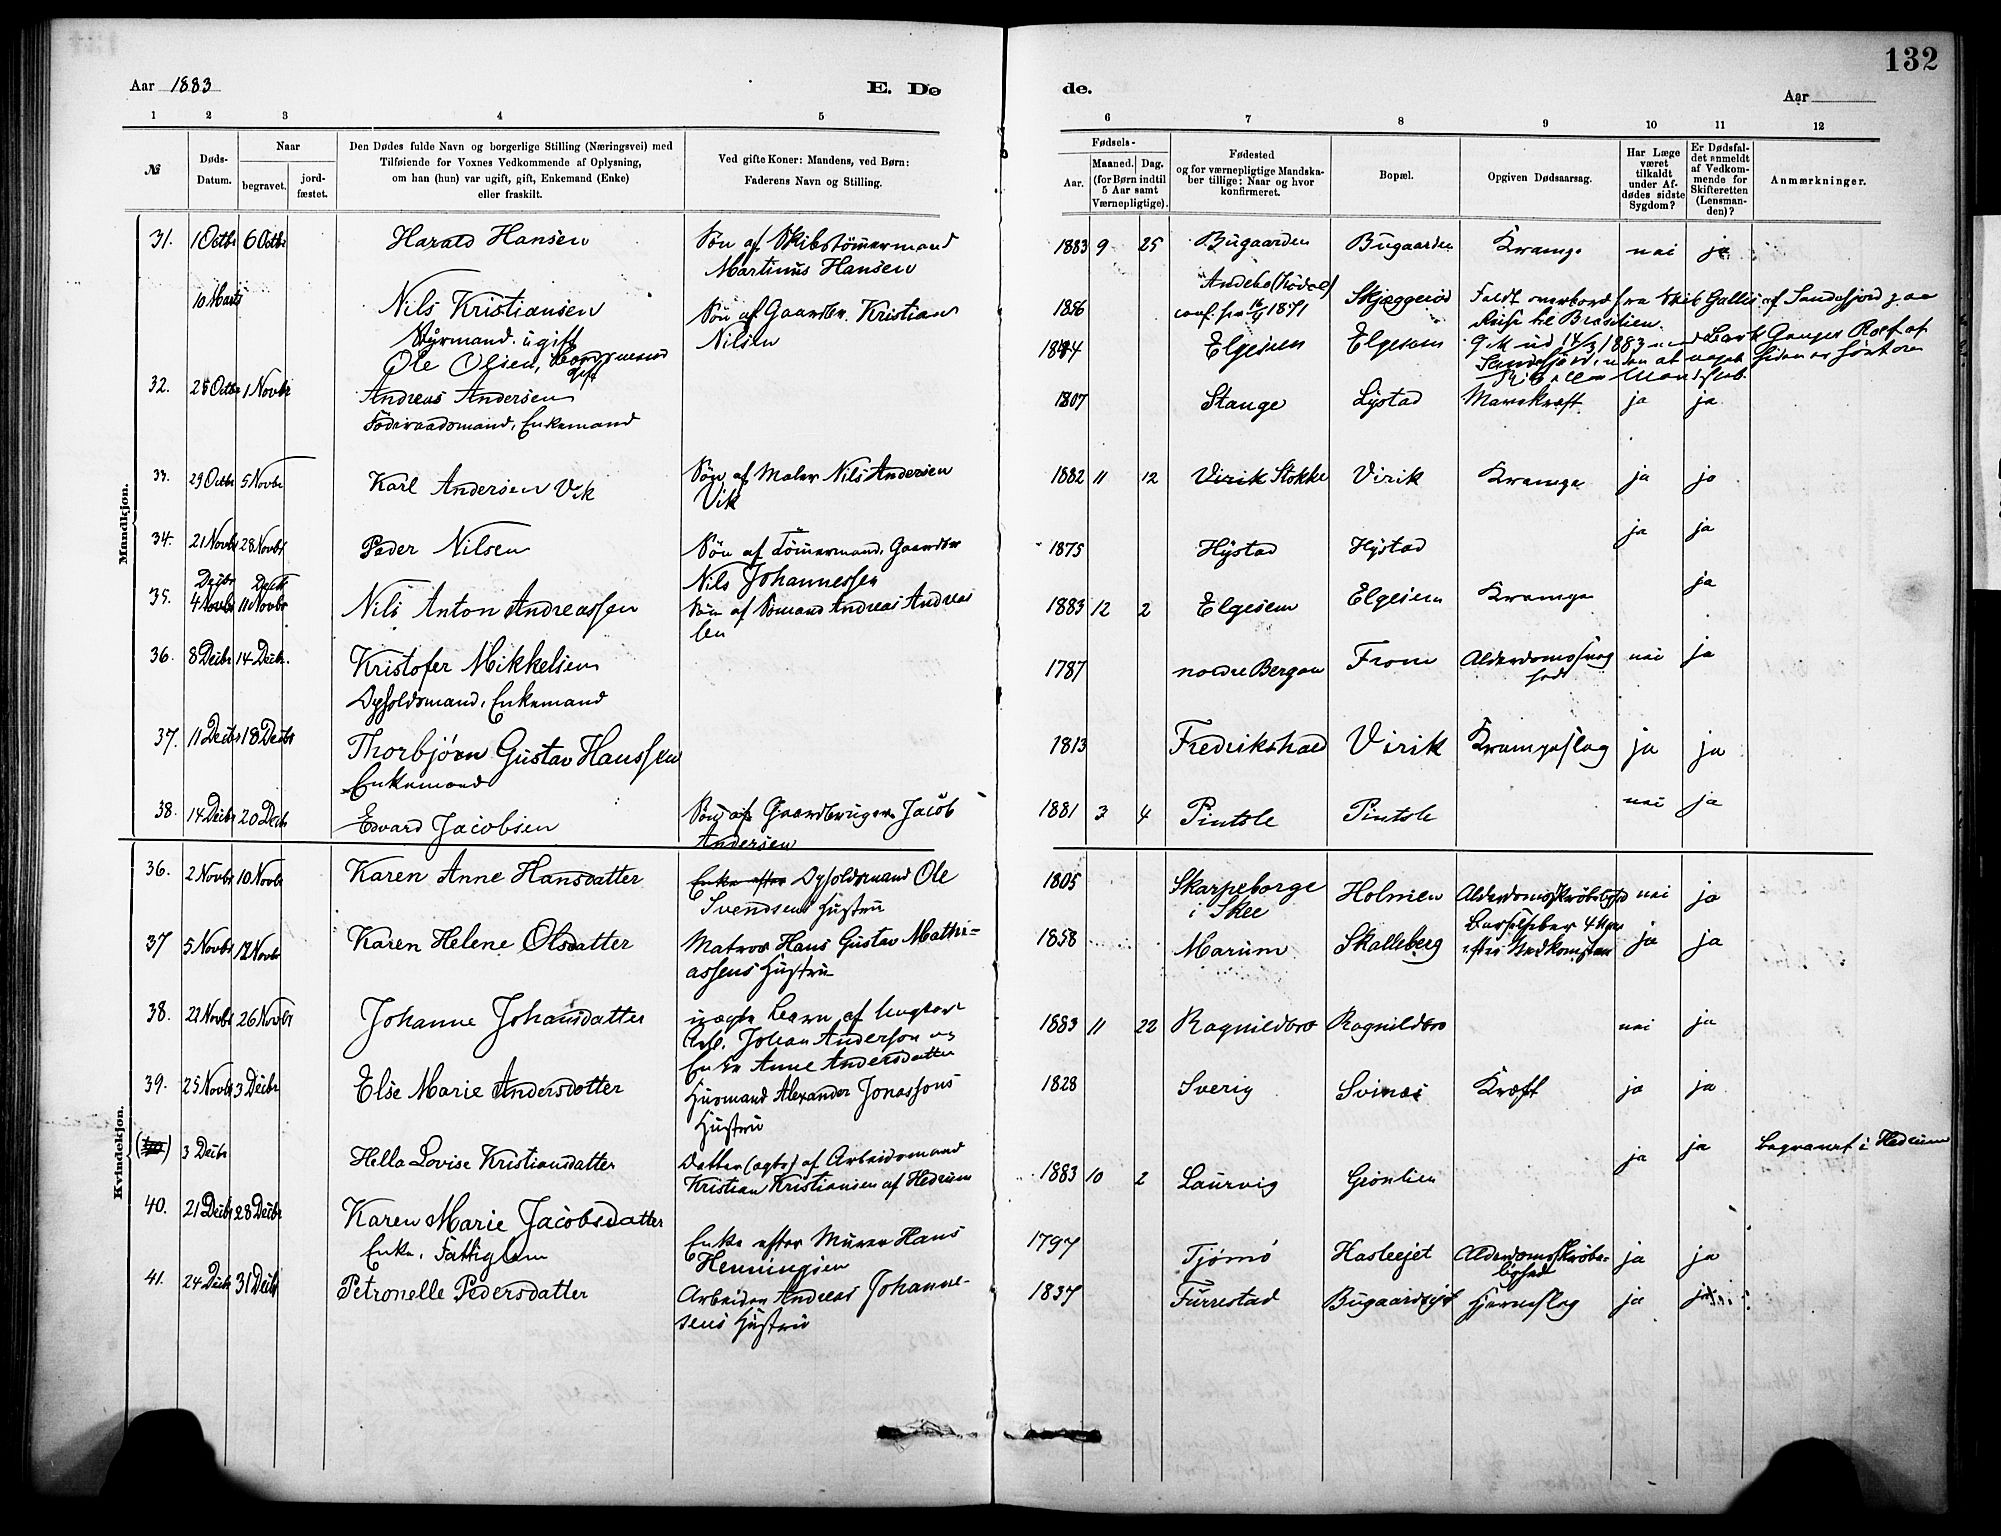 132
Aar 1883 E. Dø
de. Aar
1 2 3 4 5
6 7 8 9 10 11 12
№
Døds-Datum.
Naar
begravet. jord-fæstet.
Den Dødes fulde Navn og borgerlige Stilling (Næringsvei) med
Tilføiende for Voxnes Vedkommende af Oplysning,
om han (hun) var ugift, gift, Enkemand (Enke)
eller fraskilt.
Ved gifte Koner: Mandens, ved Børn:
Faderens Navn og Stilling.
Fødsels-
Aar. Maaned. Dag.
(for Børn indtil
5 Aar samt
Værnepligtige).
Fødested
og for værnepligtige Mandska-
ber tillige: Naar og hvor
konfirmeret.
Bopæl.
Opgiven Dødsaarsag.
Har Læge
været
tilkaldt
under Af-
dødes sidste
Sygdom?
Er Dødsfal-
det anmeldt
af Vedkom-
mende for
Skifteretten
(Lensman-
den)?
Anmærkninger.
Mandkjøn.
31. 1 Octbr 6 Octbr Harald Hansen Søn af Skibstømmermand
Martinus Hansen
1883 9 25 Bugaarden Bugaarden Krampe nei ja
10 Marts Nils Kristiansen
Styrmand. ugift
Søn af Gaardbr. Kristian
Nilsen
1856 Andebo (Kodal)
conf. 1871 Skjæggerød Faldt overbord fra Skib Gallei af Sandefjord paa
Reise til Brasilien.
Ole Olsen, gift
1844 Elgesem Elgesem Gik ud 14/3 1883 Ganger Rolf af
Sandefjord, uden at noget siden er hørt om
Skib eller Mandskab.
32. 25 Octbr 1 Novbr Andreas Andersen
Føderaadsmand, Enkemand
1807 Stange Lystad Marvkræft ja ja
33. 29 Octbr 5 Novbr Karl Andersen Vik Søn af Maler Nils Andersen
Vik
1882 11 12 Virik Stokke Virik Krampe ja ja
34. 21 Novbr 28 Novbr Peder Nilsen Søn af Tømmermand, Gaardbr
Nils Johannessen
1875 Hystad Hystad ja ja
35. 4 Novbr Decbr 11 Novbr Decbr Nils Anton Andreassen Søn af Sømand Andreas Andreas
sen
1883 12 2 Elgesem Elgesem Krampe ja
36. 8 Decbr 14 Decbr. Kristofer Mikkelsen
Opholdsmand, Enkemand
1787 nordre Bergan From Alderdomssvag
hed nei ja
37. 11 Decbr 18 Decbr Thorbjørn Gustav Hanssen
Enkemand
1813 Fredrikshald Virik Krampeslag ja ja
38. 14 Decbr 20 Decbr Edvard Jacobsen Søn af Gaardbruger Jacob
Andersen
1881 3 4 Pintsle Pintsle nei ja
Kvindekjøn.
36. 2 Novbr 10 Novbr Karen Anne Hansdatter Enke efter Opholdsmand Ole
Svendsens Hustru
1805 Skarpeborge
i Skee Holmen Alderdomsskrøbelighed nei ja
37 5 Novbr 12 Novbr Karen Helene Olsdatter Matros Hans Gustav Mathi-
assens Hustru
1858 Marum Skalleberg Barselfeber 4 Uger
efter Nedkomsten ja ja
38. 22 Novbr 26 Novbr Johanne Johansdatter uægte Barn af Ungkar
Arb. Johan Anderson og
Enke Anne Andersdatter
1883 11 22 Ragnildbro Ragnildbro nei ja
39. 25 Novbr 3 Decbr Else Marie Andersdatter Husmand Alexander Jonassons
Hustru
1828 Sverig Svinæs Kræft ja ja
(40) 3 Decbr Hella Lovise Kristiansdatter Datter (ægte) af Arbeidsmand
Kristian Kristiansen af Hedrum
1883 10 2 Laurvig Grønlien ja ja begravet i Hedrum
40. 21 Decbr 28 Decbr Karen Marie Jacobsdatter
Enke. Fattiglem
Enke efter Murer Hans
Henningsen
1797 Tjømø Hasleejet Alderdomsskrøbe-
lighed ja ja
41. 24 Decbr 31 Decbr Petronelle Pedersdatter Arbeider Andreas Johanne-
sens Hustru
1837 Furrestad Bugaardsejet Hjerneslag ja ja